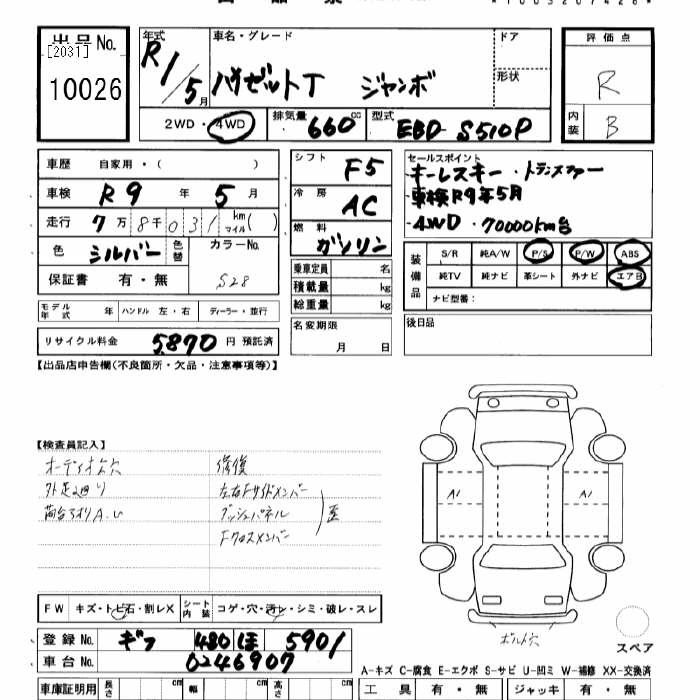 出品No. [2031] 10026
年式 R1/5月
車名・グレード ハイゼットT ジャンボ
ドア
形状
評価点 R
内装 B
2WD・4WD 排気量 660cc 型式 EBD-S510P
車歴 自家用・( )
車検 R9年 5月
走行 7万8千031 km マイル( )
色 シルバー 色替 カラーNo. S28
保証書 有・無
モデル年式 年 ハンドル 左・右 ディーラー・並行
リサイクル料金 5,870円 預託済
シフト F5
冷房 AC
燃料 ガソリン
乗車定員 名
積載量 kg
総重量 kg
名変期限 月 日
セールスポイント
キーレスキー・トランスファー
・車検R9年5月
・4WD・70000km台
装備品 S/R 純A/W P/S P/W ABS
純TV 純ナビ 革シート 外ナビ エアB
ナビ型番:
後日品
【出品店申告欄(不良箇所・欠品・注意事項等)】
【検査員記入】
オーディオ欠穴
外足廻り
荷台ヲオリA.U
修復
左右Fサイドメンバー
ダッシュパネル
Fクロスメンバー
歪
A1 A1
ボルト穴
スペア
FW キズ・トビ石・割レX シート内装 コゲ・穴・汚レ・シミ・破レ・スレ
登録No. ギフ 480 ほ 5901
車台No. 0246907
A-キズ C-腐食 E-エクボ S-サビ U-凹ミ W-補修 XX-交換済
車庫証明用 長さ cm 幅 cm 高さ cm
工具 有・無 ジャッキ 有・無